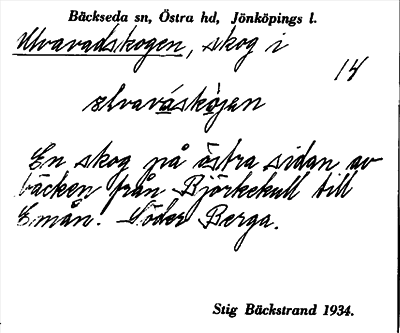 Bäckseda sn, Östra hd, Jönköpings l.
Ulvavadskogen, skog i
14
ulvavásko̱jan
En skog på östra sidan av
bäcken från Björkekull till
Emån. Söder Berga.
Stig Bäckstrand 1934.